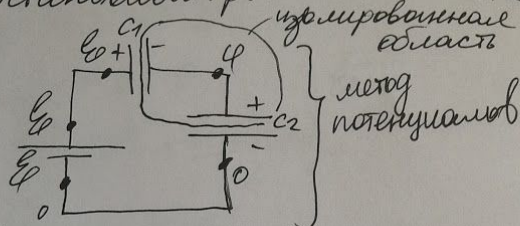 C₁
изолированная
область
ℰ + - φ
ℰ
+ C₂
метод
потенциалов
ℰ
- 0
0